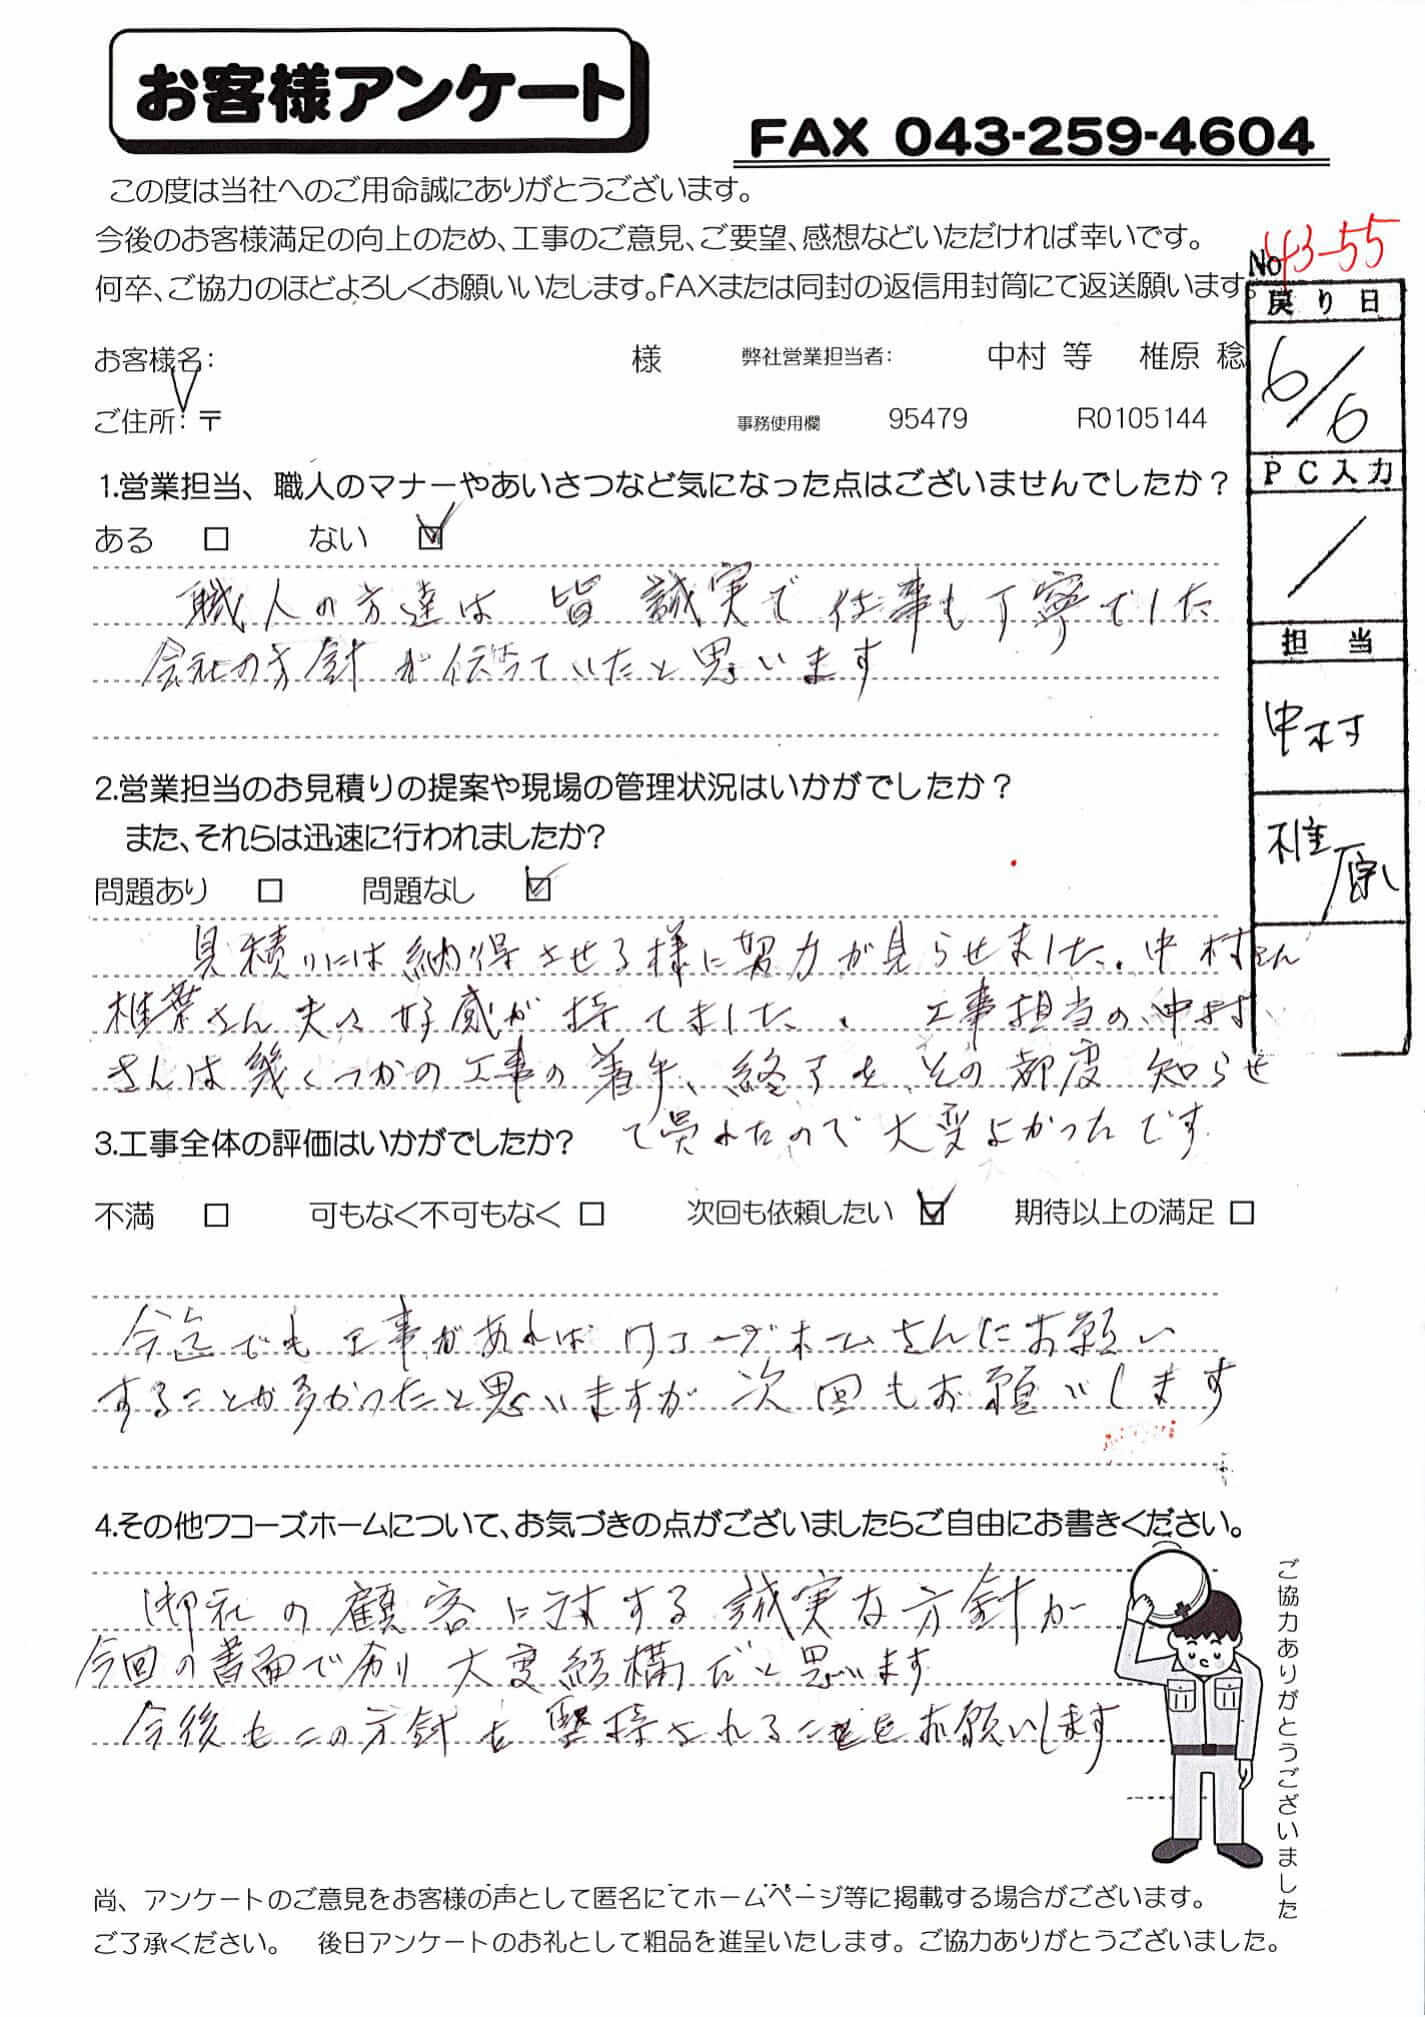 お客様アンケート
FAX 043-259-4604
この度は当社へのご用命誠にありがとうございます。
今後のお客様満足の向上のため、工事のご意見、ご要望、感想などいただければ幸いです。
何卒、ご協力のほどよろしくお願いいたします。FAXまたは同封の返信用封筒にて返送願います。
No 43-55
戻り日
6/6
PC入力
/
担当
中村
椎原
お客様名: 様 弊社営業担当者: 中村 等 椎原 稔
ご住所:〒 事務使用欄 95479 R0105144
1.営業担当、職人のマナーやあいさつなど気になった点はございませんでしたか？
ある □ ない ☑
職人の方達は 皆 誠実で 仕事も丁寧でした
会社の方針が伝っていたと思います
2.営業担当のお見積りの提案や現場の管理状況はいかがでしたか？
また、それらは迅速に行われましたか?
問題あり □ 問題なし ☑
見積りには納得させる様に努力が見らせました。中村さん
椎葉さん夫々好感が持てました。 工事担当の中村
さんは幾くつかの工事の着手、終了を、その都度 知らせ
て貰えたので大変よかったです
3.工事全体の評価はいかがでしたか?
不満 □ 可もなく不可もなく □ 次回も依頼したい ☑ 期待以上の満足 □
今迄でも工事があればワコーズホームさんにお願い
することが多かったと思いますが 次回もお願いします
4.その他ワコーズホームについて、お気づきの点がございましたらご自由にお書きください。
御社の顧客に対する誠実な方針が
今回の書面で判り 大変結構だと思います
今後もこの方針を堅持されることをお願いします
ご協力ありがとうございました
尚、アンケートのご意見をお客様の声として匿名にてホームページ等に掲載する場合がございます。
ご了承ください。 後日アンケートのお礼として粗品を進呈いたします。ご協力ありがとうございました。